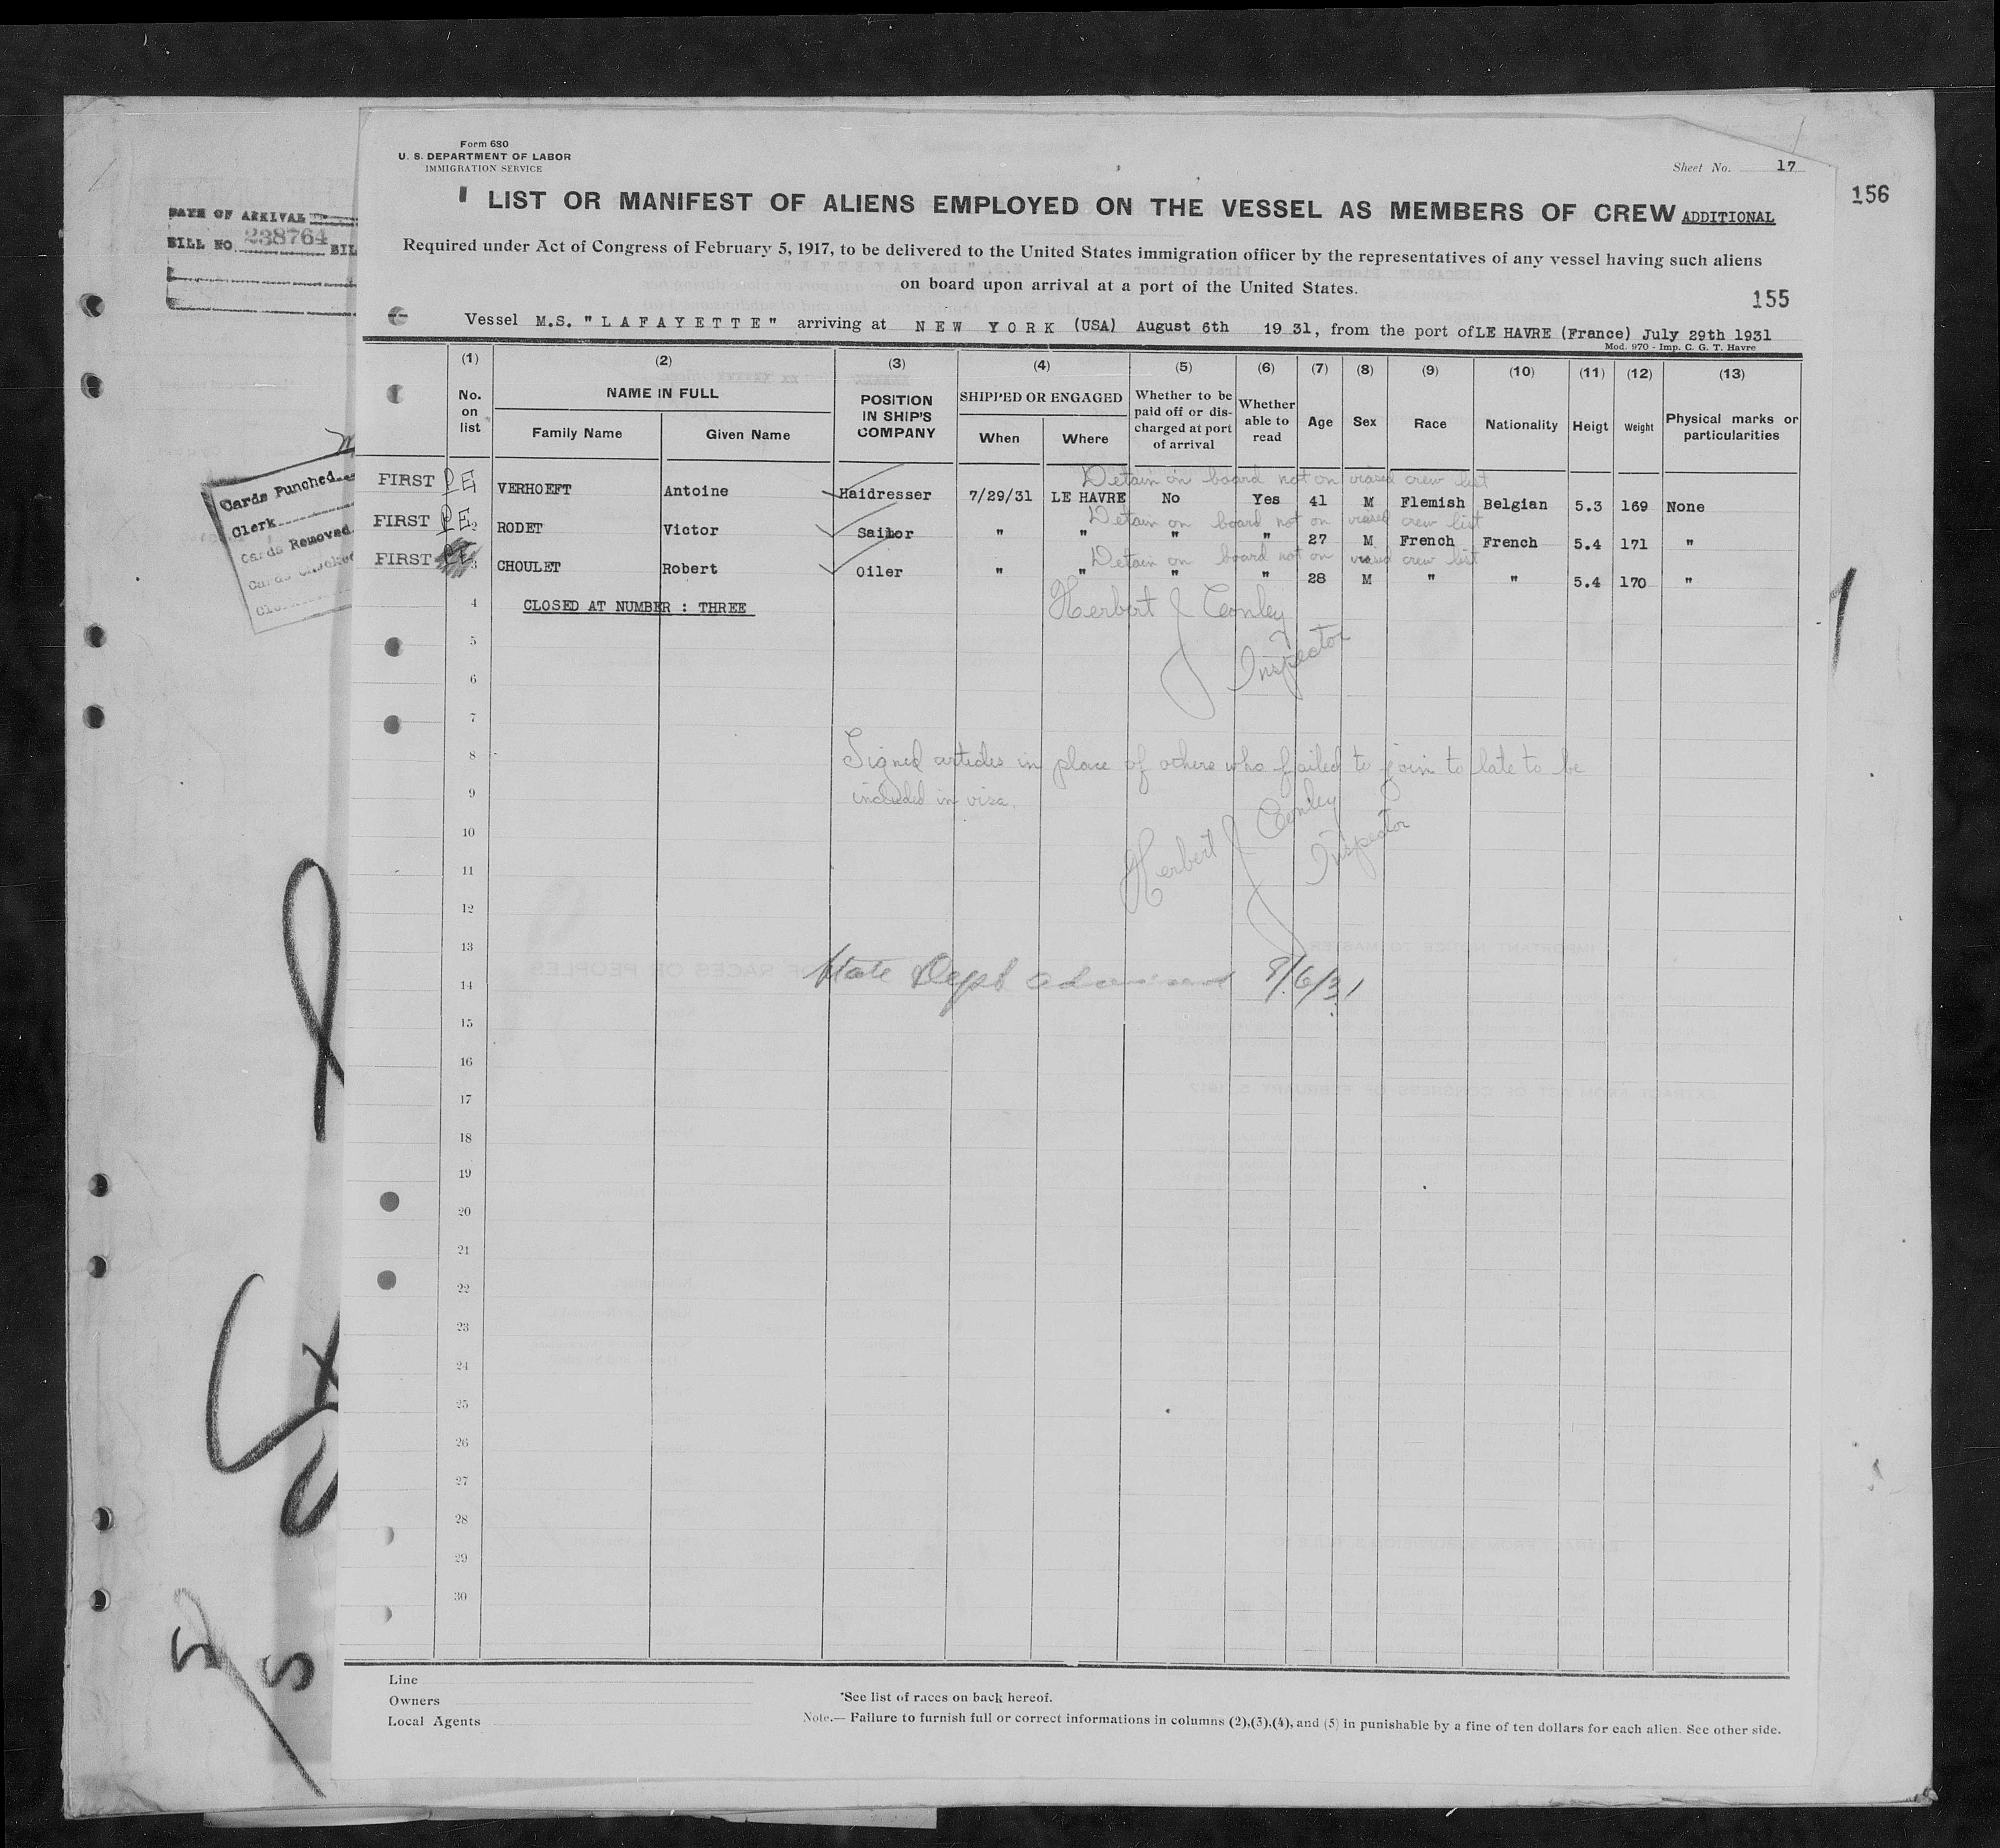 Form 680
U. S. DEPARTMENT OF LABOR
IMMIGRATION SERVICE
Sheet No. 17
LIST OR MANIFEST OF ALIENS EMPLOYED ON THE VESSEL AS MEMBERS OF CREW ADDITIONAL
156
Required under Act of Congress of February 5, 1917, to be delivered to the United States immigration officer by the representatives of any vessel having such aliens
on board upon arrival at a port of the United States.
155
DATE OF ARRIVAL
BILL NO. 238764 BIL
Vessel M.S. "LAFAYETTE" arriving at NEW YORK (USA) August 6th 1931, from the port of LE HAVRE (France) July 29th 1931
Mod. 970 - Imp. C. G. T. Havre
(1) (2) (3) (4) (5) (6) (7) (8) (9) (10) (11) (12) (13)
No. on list
NAME IN FULL
Family Name Given Name
POSITION IN SHIP'S COMPANY
SHIPPED OR ENGAGED
When Where
Whether to be paid off or discharged at port of arrival
Whether able to read
Age Sex Race Nationality Heigt Weight
Physical marks or particularities
Cards Punched
Clerk
Cards Removed
Cards Checked
Detain on board not on visaed crew list
FIRST PE VERHOEFT Antoine Haidresser 7/29/31 LE HAVRE No Yes 41 M Flemish Belgian 5.3 169 None
Detain on board not on visaed crew list
FIRST PE 2 RODET Victor Sailor " " " " 27 M French French 5.4 171 "
Detain on board not on visaed crew list
FIRST 3 CHOULET Robert Oiler " " " " 28 M " " 5.4 170 "
4 CLOSED AT NUMBER : THREE
Herbert J Conley
Inspector
5
6
7
8 Signed articles in place of others who failed to join to late to be
9 included in visa.
Herbert J Conley
Inspector
10
11
12
13
14 State Dept 8/6/31
15
16
17
18
19
20
21
22
23
24
25
26
27
28
29
30
Line
Owners
Local Agents
*See list of races on back hereof.
Note.— Failure to furnish full or correct informations in columns (2),(3),(4), and (5) in punishable by a fine of ten dollars for each alien. See other side.